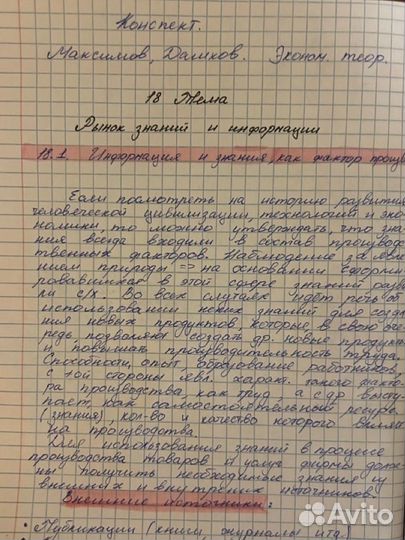 Конспект.
Максимов, Данков. Эконом. теор.
18 Тема
Рынок знаний и информации
18.1. Информация и знания, как фактор произв
Если посмотреть на историю развития
человеческой цивилизации, технологий и эко
номики, то можно утверждать, что зна
ния всегда входили в состав производс
твенных факторов. Наблюдение за явле
нием природы => на основании сформи
ровавшихся в этой сфере знаний разви
ли с/х. Во всех случаях идёт речь об
использовании неких знаний для созда
ния новых продуктов, которые, в свою оче
редь, позволяют создать др. новые продукты
и повышать производительность труда.
Способности, опыт, образование работников,
с 1ой стороны явл. характ. такого факто
ра производства, как труд, а с др. высту
пает как самостоятельный ресурс
(знания), кол-во и качество которого влияет
на производства.
Для использования знаний в процессе
производства товаров и услуг фирмы долж
ны получить необходимое знания из
внешних и внутренних источников.
Внешние источники:
• Публикации (книги, журналы и тд.)
Avito